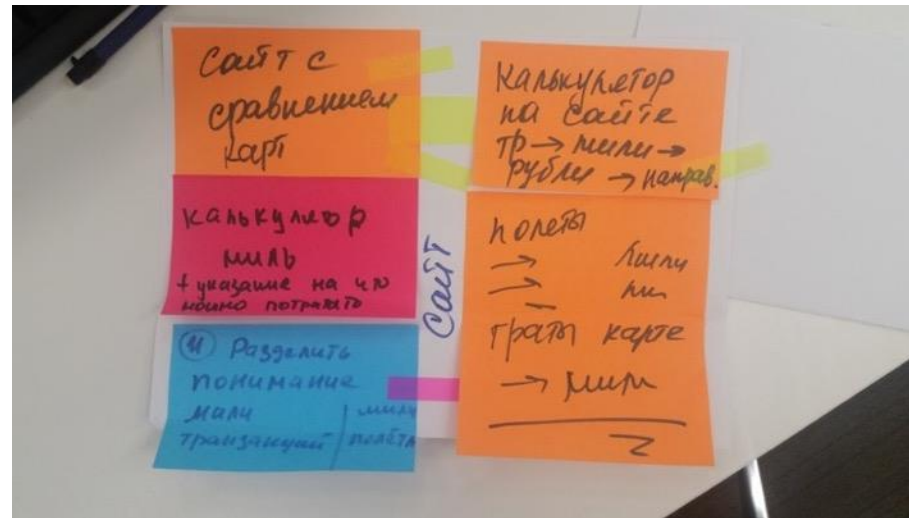 Сайт с
сравнением
карт
Калькулятор
миль
+ указание на что
можно потратить
(И) Разделить
понимание
мили | мили
транзакций | полёта
сайт
Калькулятор
на сайте
тр → мили →
рубли → направ.
полеты
→ мили
→
траты карте
→ мили
Σ